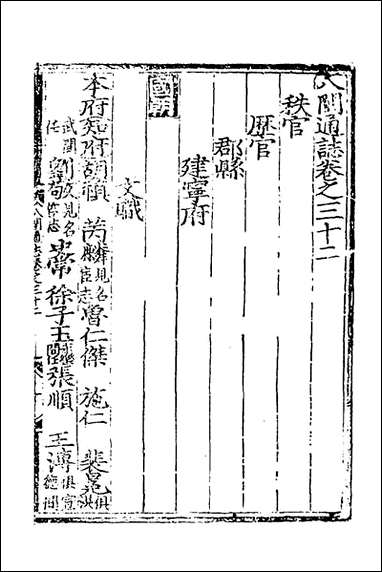 八閩通誌卷之三十二
秩官
歷官
郡縣
建寧府
國朝
文職
本府知府胡禎 芮麟見名宦志 魯仁傑 施仁 裴冕俱洪
武間任 劉 見名宦志 常 徐子玉 張順 王溥俱宣德間